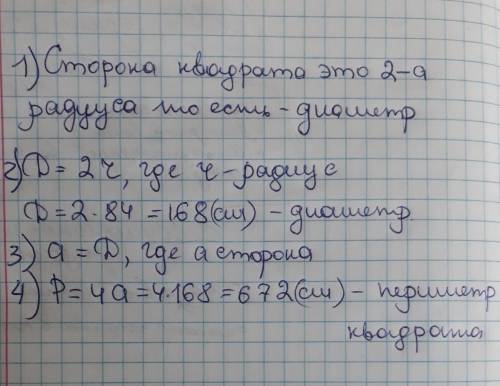 1) Сторона квадрата это 2-а
радууса то есть - диаметр
2) D = 2r, где r - радиус
D = 2·84 = 168 (см) - диаметр
3) a = D, где a сторона
4) P = 4a = 4·168 = 672 (см) - периметр
квадрата